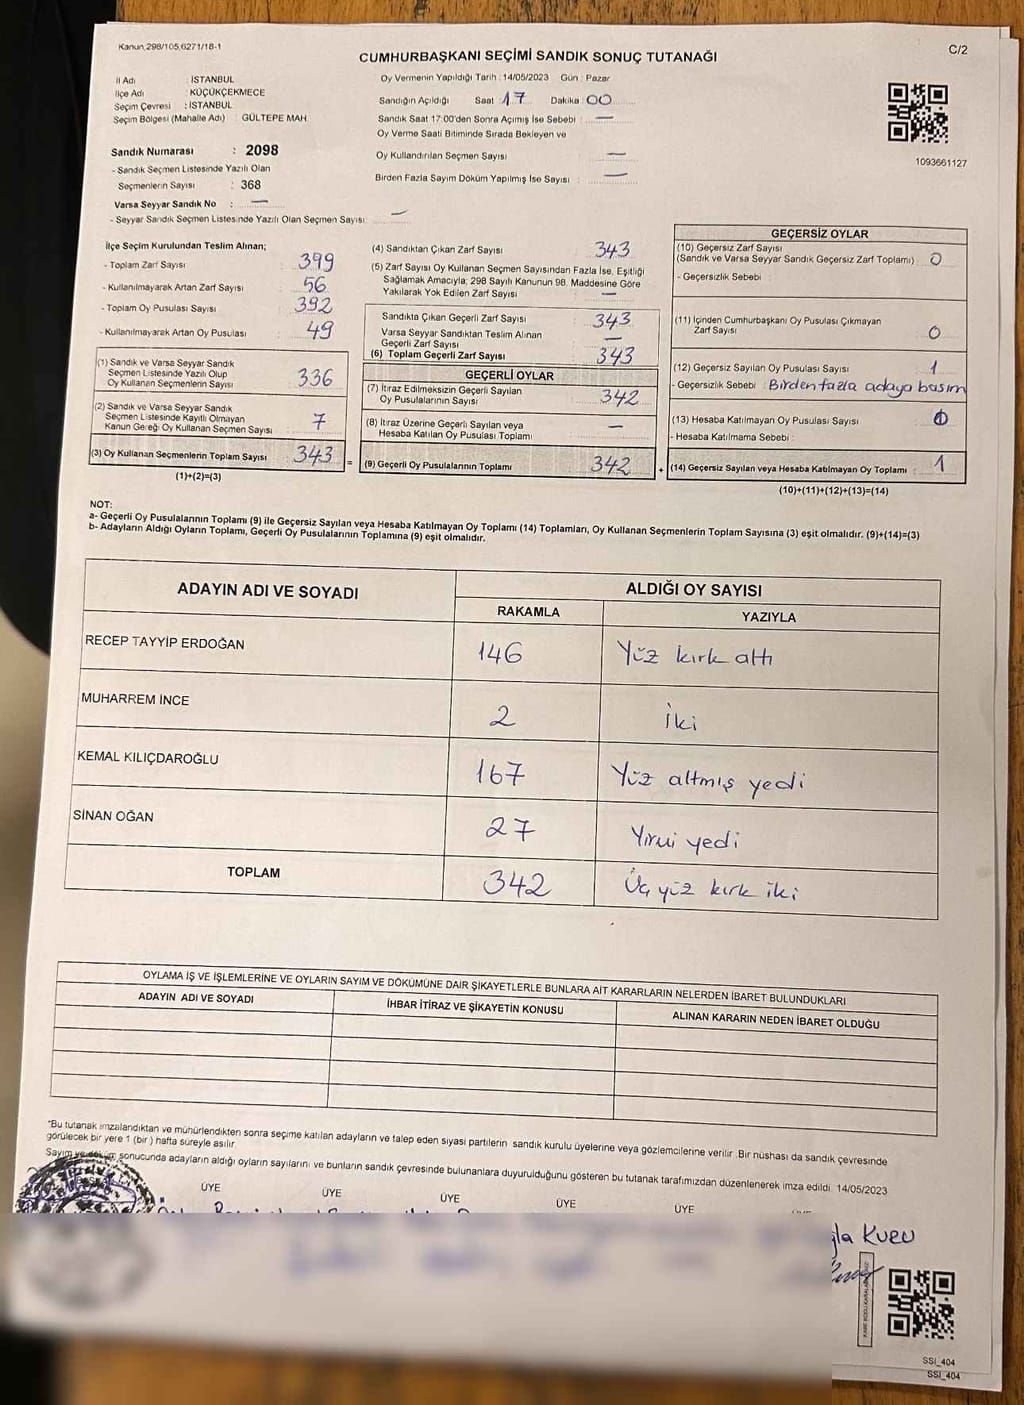 Kanun 298/105,6271/18-1
C/2
CUMHURBAŞKANI SEÇİMİ SANDIK SONUÇ TUTANAĞI
İl Adı : İSTANBUL
İlçe Adı : KÜÇÜKÇEKMECE
Seçim Çevresi : İSTANBUL
Seçim Bölgesi (Mahalle Adı) : GÜLTEPE MAH
Sandık Numarası : 2098
- Sandık Seçmen Listesinde Yazılı Olan
Seçmenlerin Sayısı : 368
Varsa Seyyar Sandık No : —
- Seyyar Sandık Seçmen Listesinde Yazılı Olan Seçmen Sayısı: —
Oy Vermenin Yapıldığı Tarih : 14/05/2023 Gün : Pazar
Sandığın Açıldığı Saat 17 Dakika 00
Sandık Saat 17:00'den Sonra Açılmış İse Sebebi : —
Oy Verme Saati Bitiminde Sırada Bekleyen ve
Oy Kullandırılan Seçmen Sayısı —
Birden Fazla Sayım Döküm Yapılmış İse Sayısı : —
1093661127
İlçe Seçim Kurulundan Teslim Alınan;
- Toplam Zarf Sayısı : 399
- Kullanılmayarak Artan Zarf Sayısı : 56
- Toplam Oy Pusulası Sayısı : 392
- Kullanılmayarak Artan Oy Pusulası : 49
(1) Sandık ve Varsa Seyyar Sandık
Seçmen Listesinde Yazılı Olup
Oy Kullanan Seçmenlerin Sayısı : 336
(2) Sandık ve Varsa Seyyar Sandık
Seçmen Listesinde Kayıtlı Olmayan
Kanun Gereği Oy Kullanan Seçmen Sayısı : 7
(3) Oy Kullanan Seçmenlerin Toplam Sayısı : 343 =
(1)+(2)=(3)
(4) Sandıktan Çıkan Zarf Sayısı : 343
(5) Zarf Sayısı Oy Kullanan Seçmen Sayısından Fazla İse, Eşitliği
Sağlamak Amacıyla; 298 Sayılı Kanunun 98. Maddesine Göre
Yakılarak Yok Edilen Zarf Sayısı : —
Sandıkta Çıkan Geçerli Zarf Sayısı : 343
Varsa Seyyar Sandıktan Teslim Alınan
Geçerli Zarf Sayısı : —
(6) Toplam Geçerli Zarf Sayısı : 343
GEÇERLİ OYLAR
(7) İtiraz Edilmeksizin Geçerli Sayılan
Oy Pusulalarının Sayısı : 342
(8) İtiraz Üzerine Geçerli Sayılan veya
Hesaba Katılan Oy Pusulası Toplamı : —
(9) Geçerli Oy Pusulalarının Toplamı : 342 +
GEÇERSİZ OYLAR
(10) Geçersiz Zarf Sayısı
(Sandık ve Varsa Seyyar Sandık Geçersiz Zarf Toplamı) : 0
- Geçersizlik Sebebi :
(11) İçinden Cumhurbaşkanı Oy Pusulası Çıkmayan
Zarf Sayısı : 0
(12) Geçersiz Sayılan Oy Pusulası Sayısı : 1
- Geçersizlik Sebebi : Birden fazla adaya basım
(13) Hesaba Katılmayan Oy Pusulası Sayısı :
- Hesaba Katılmama Sebebi :
(14) Geçersiz Sayılan veya Hesaba Katılmayan Oy Toplamı : 1
(10)+(11)+(12)+(13)=(14)
NOT:
a- Geçerli Oy Pusulalarının Toplamı (9) ile Geçersiz Sayılan veya Hesaba Katılmayan Oy Toplamı (14) Toplamları, Oy Kullanan Seçmenlerin Toplam Sayısına (3) eşit olmalıdır. (9)+(14)=(3)
b- Adayların Aldığı Oyların Toplamı, Geçerli Oy Pusulalarının Toplamına (9) eşit olmalıdır.
ADAYIN ADI VE SOYADI
ALDIĞI OY SAYISI
RAKAMLA YAZIYLA
RECEP TAYYİP ERDOĞAN 146 Yüz kırk altı
MUHARREM İNCE 2 İki
KEMAL KILIÇDAROĞLU 167 Yüz altmış yedi
SİNAN OĞAN 27 Yirmi yedi
TOPLAM 342 Üç yüz kırk iki
OYLAMA İŞ VE İŞLEMLERİNE VE OYLARIN SAYIM VE DÖKÜMÜNE DAİR ŞİKAYETLERLE BUNLARA AİT KARARLARIN NELERDEN İBARET BULUNDUKLARI
ADAYIN ADI VE SOYADI İHBAR İTİRAZ VE ŞİKAYETİN KONUSU ALINAN KARARIN NEDEN İBARET OLDUĞU
*Bu tutanak imzalandıktan ve mühürlendikten sonra seçime katılan adayların ve talep eden siyasi partilerin sandık kurulu üyelerine veya gözlemcilerine verilir. Bir nüshası da sandık çevresinde
görülecek bir yere 1 (bir) hafta süreyle asılır.
Sayım ve döküm sonucunda adayların aldığı oyların sayılarını ve bunların sandık çevresinde bulunanlara duyurulduğunu gösteren bu tutanak tarafımızdan düzenlenerek imza edildi. 14/05/2023
ÜYE ÜYE ÜYE ÜYE ÜYE
SSI_404
SSI_404